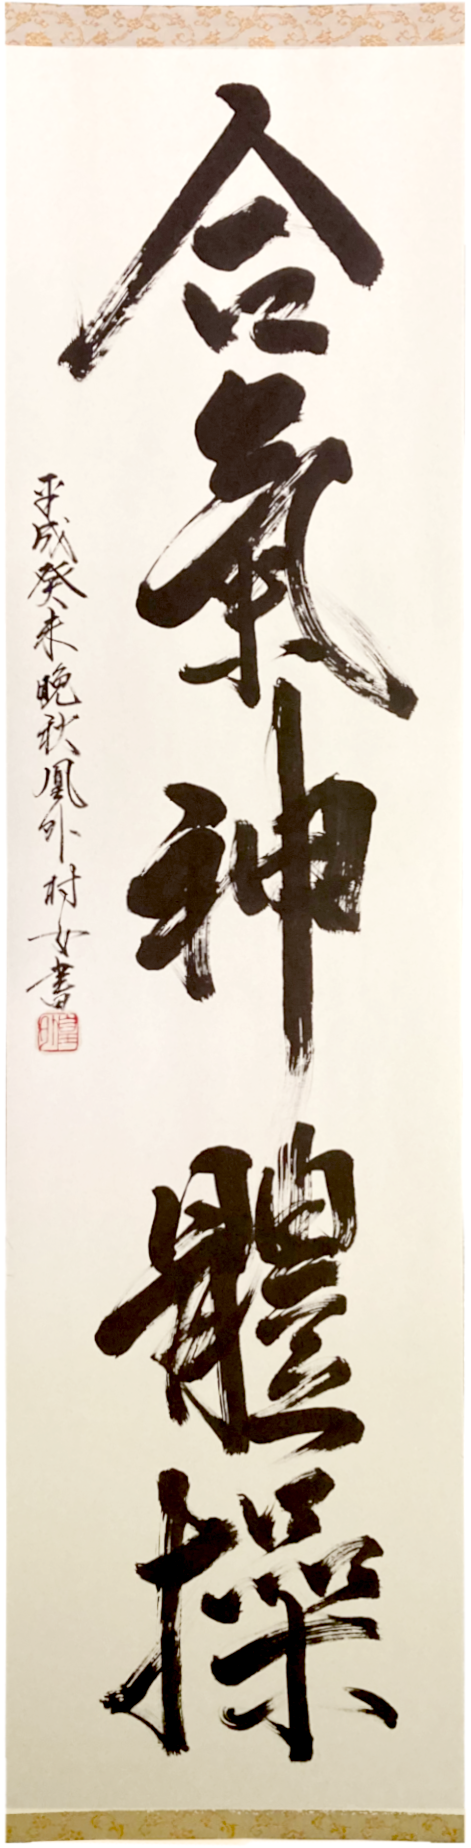 合氣神體操
平成癸未晩秋凰外村女書